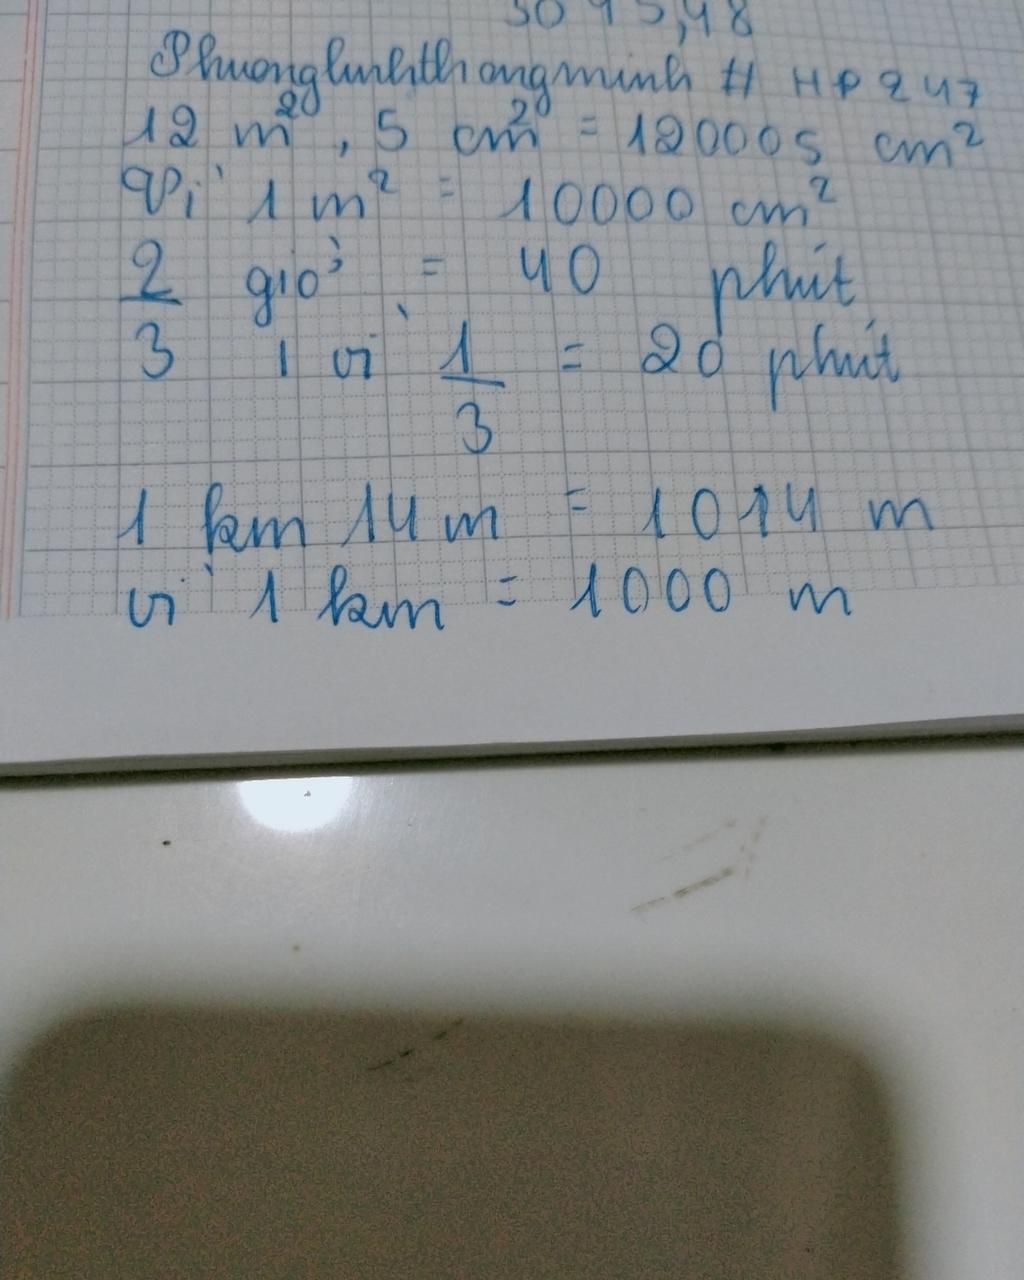 5045,48
Phuonglinhthongminh # HP247
12 m², 5 cm² = 120005 cm²
Vì 1 m² = 10000 cm²
2/3 giờ = 40 phút
, vì 1/3 = 20 phút
1 km 14 m = 1014 m
vì 1 km = 1000 m